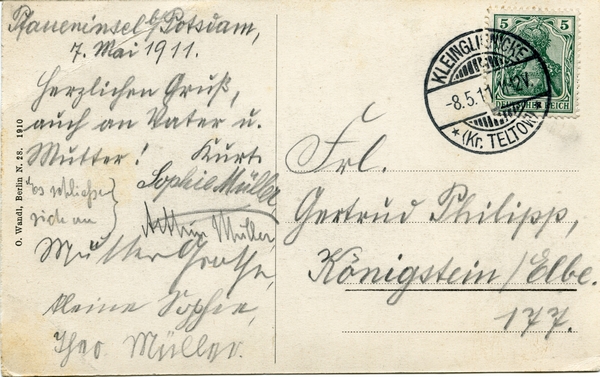 Pfaueninsel b/ Potsdam,
7. Mai 1911.
Herzlichen Gruß,
auch an Vater u.
Mutter! Kurt.
Sophie Müller
es schließen
sich an
Arthur Müller
Mutter Grothe,
kleine Sophie,
Theo Müller.
O. Wandt, Berlin N. 28. 1910
5 5
DEUTSCHES REICH
KLEINGLIENICKE
-8.5.11. 1-2V
* (Kr. TELTOW) *
Frl.
Gertrud Philipp,
Königstein/Elbe.
177.